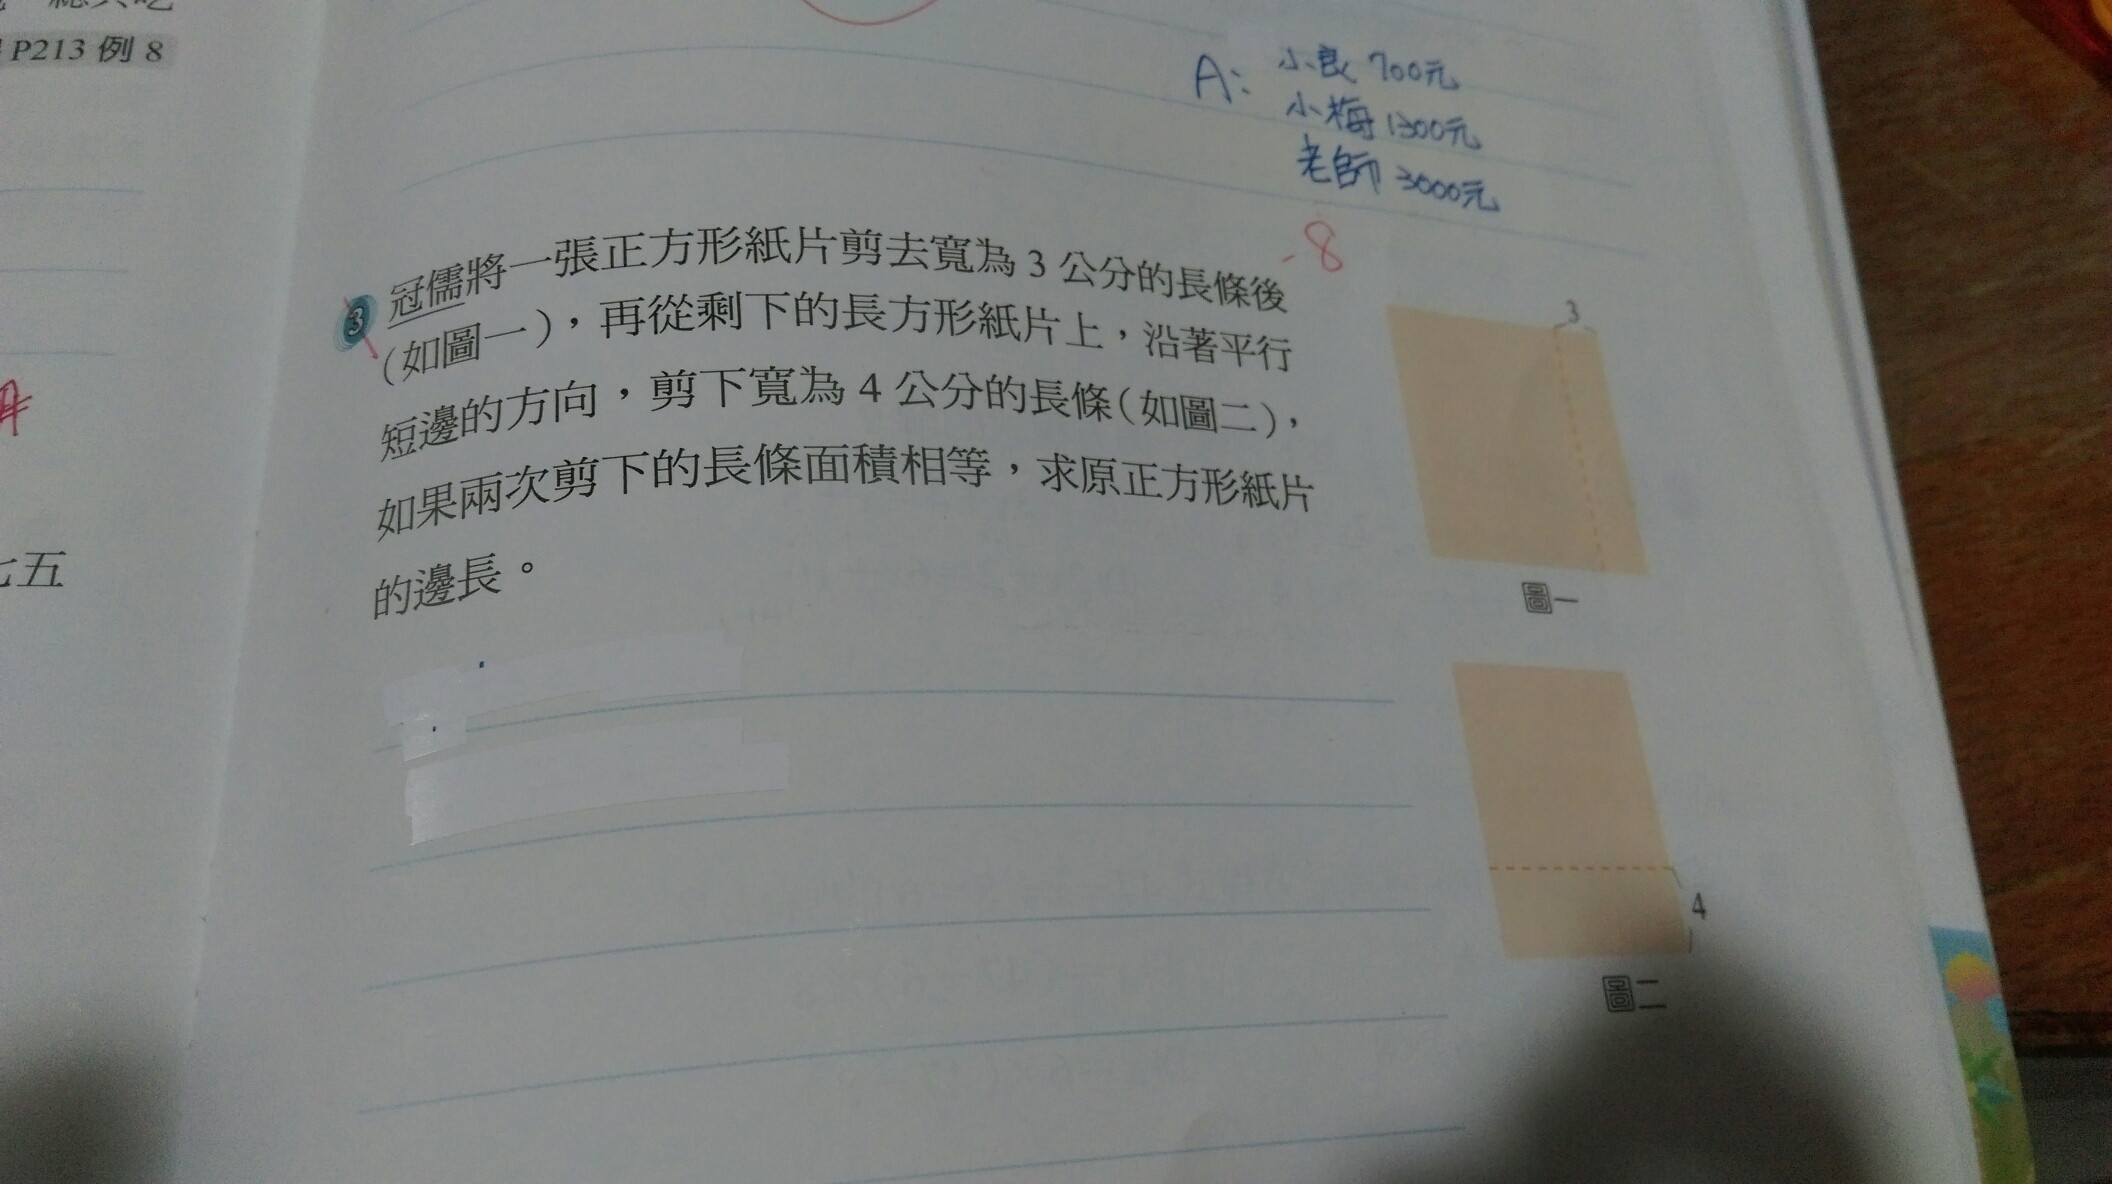 P213 例 8
A: 小良 700元
小梅 1300元
老師 3000元
-8
3 冠儒將一張正方形紙片剪去寬為 3 公分的長條後
(如圖一),再從剩下的長方形紙片上,沿著平行
短邊的方向,剪下寬為 4 公分的長條(如圖二),
如果兩次剪下的長條面積相等,求原正方形紙片
的邊長。
3
圖一
4
圖二
七五